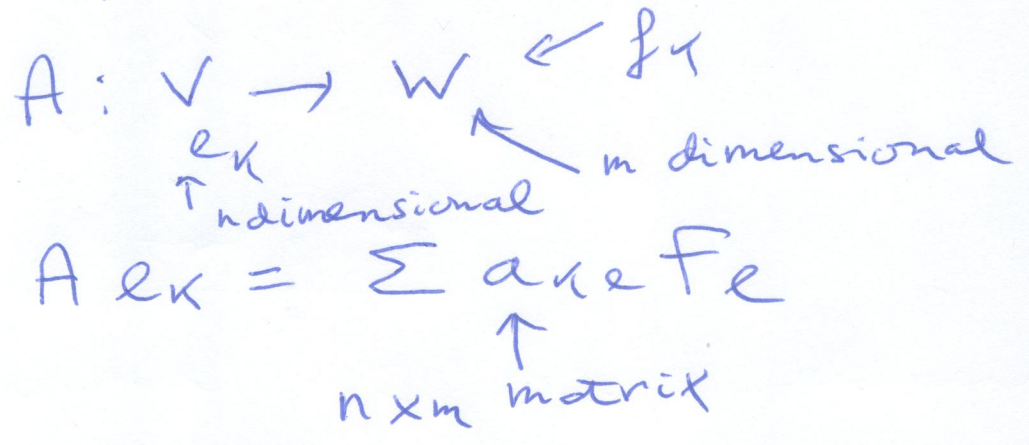 A : V → W ← fκ
eκ
↑ n dimensional
m dimensional
A eκ = Σ aκe fe
↑
n x m matrix